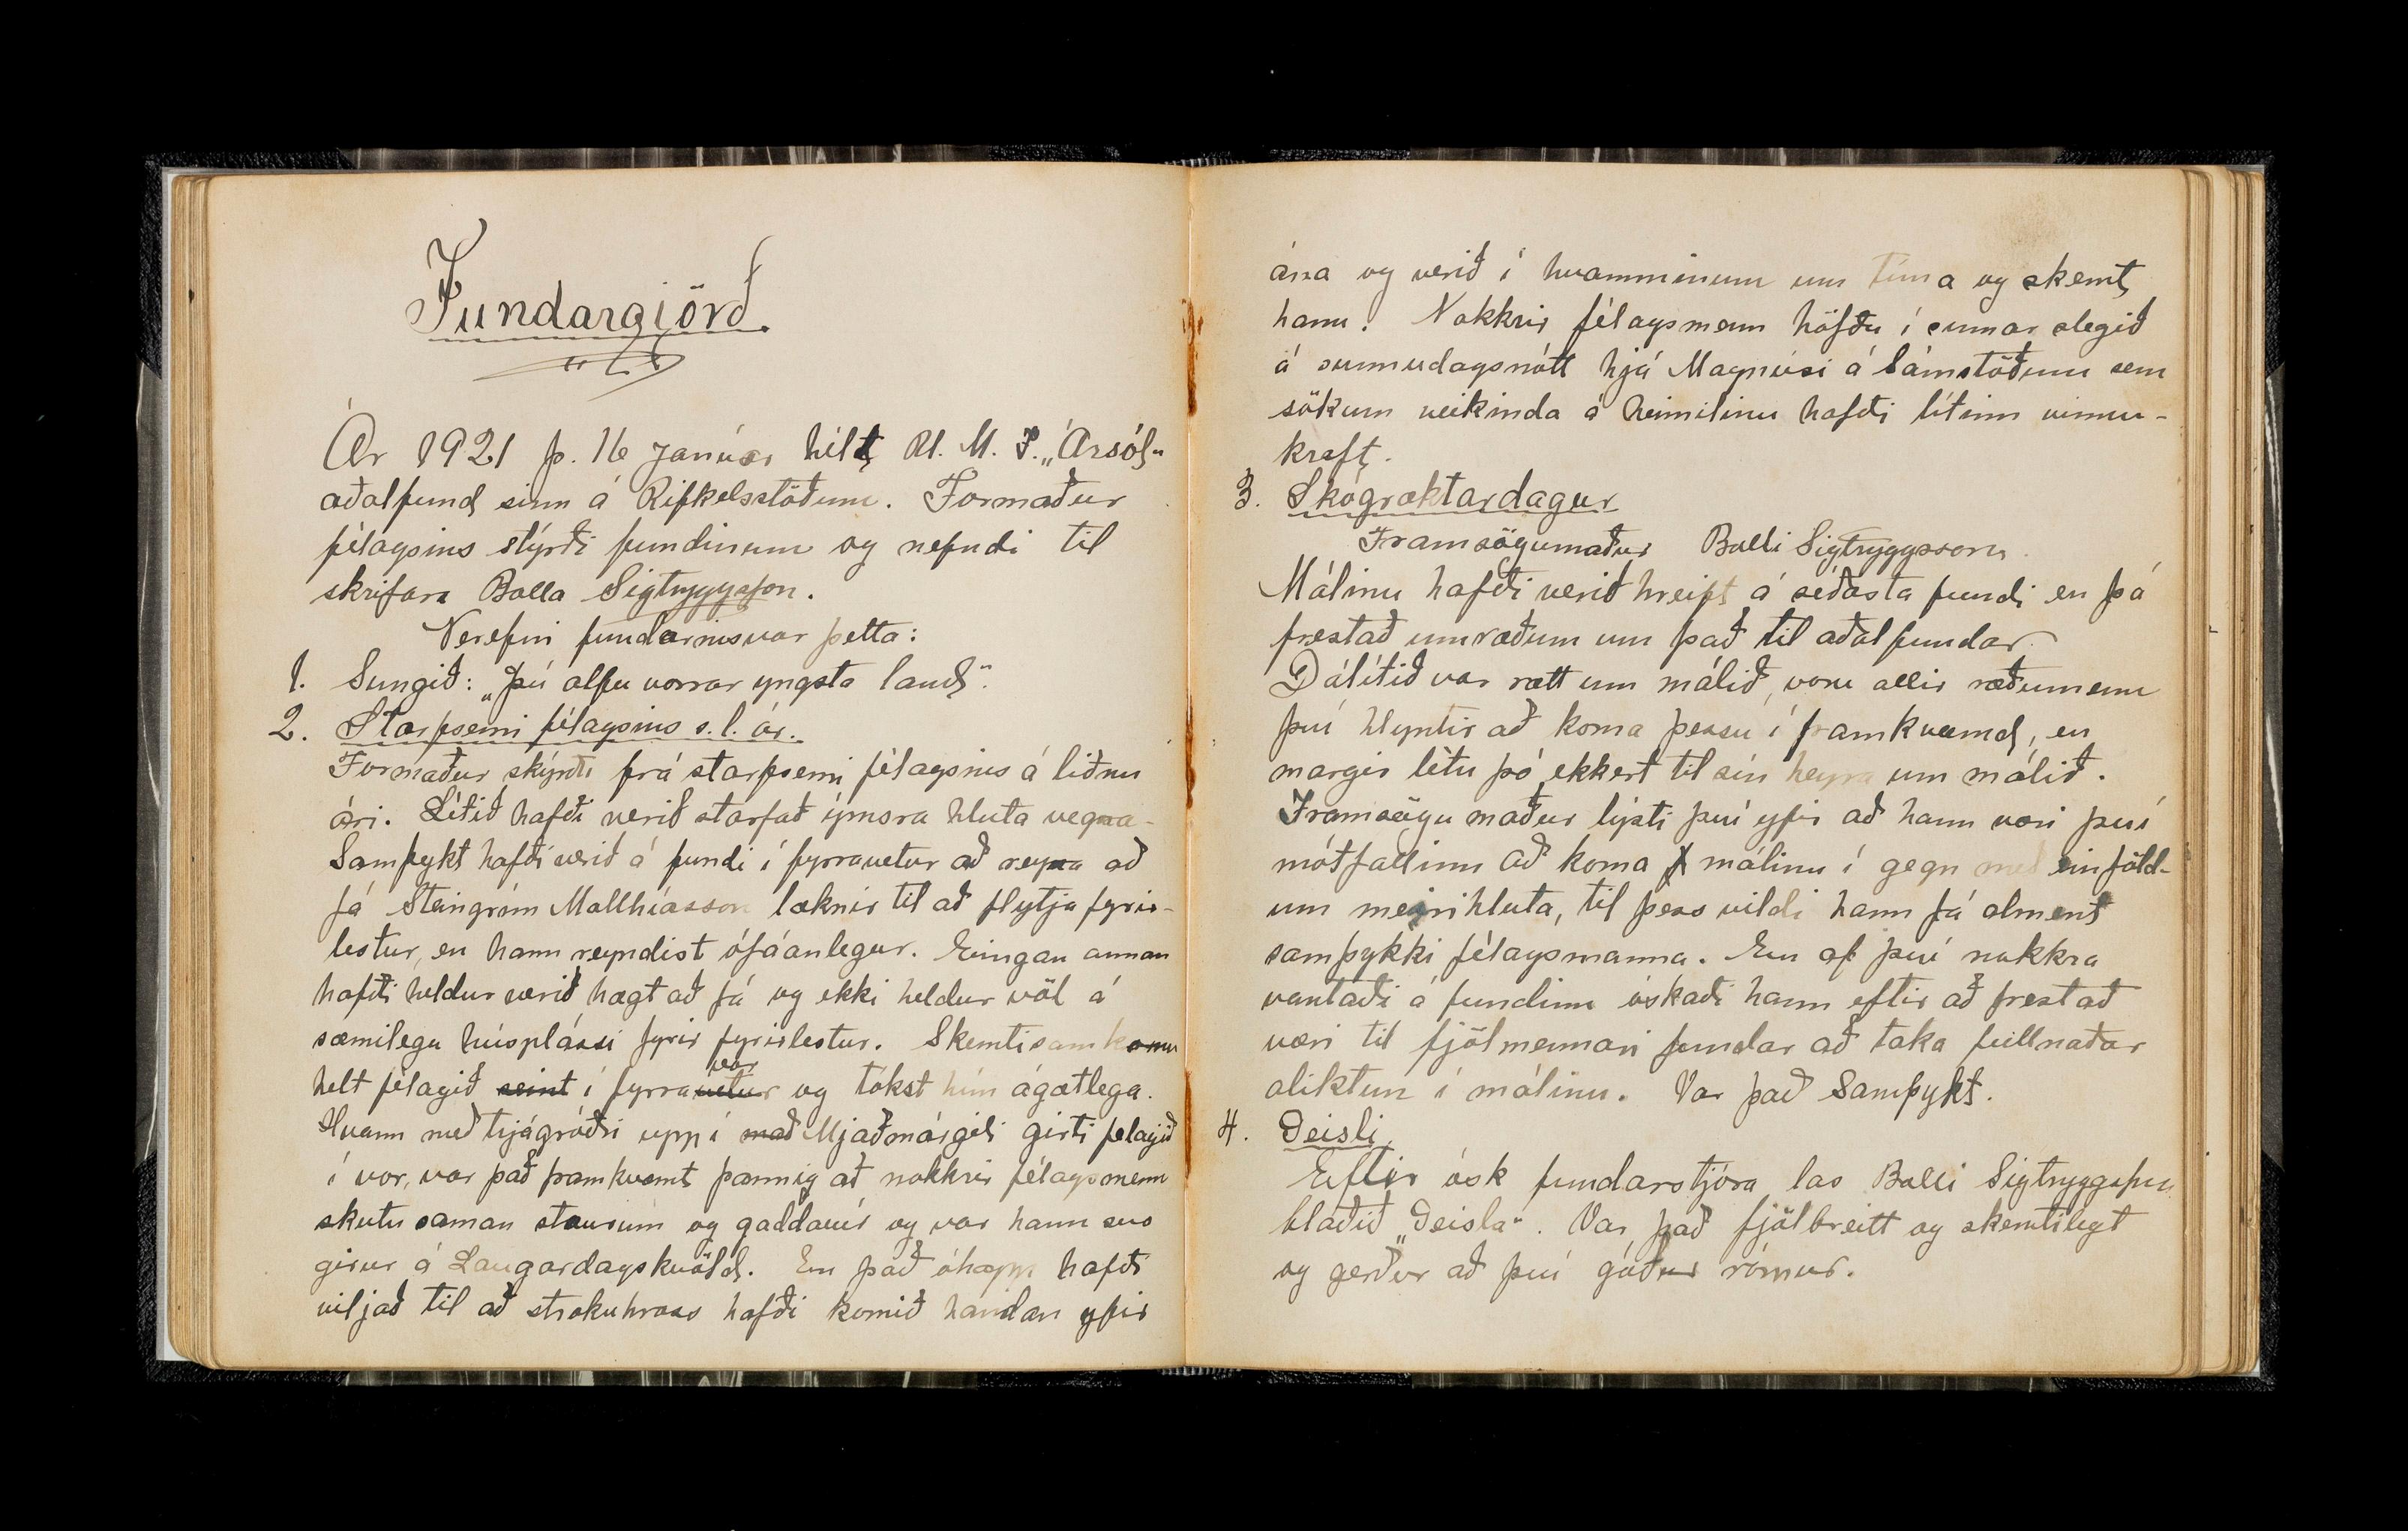 Fundargjörð.
Ár 1921 þ. 16 janúar hélt U. M. F. „Ársól"
aðalfund sinn á Rifkelsstöðum. Formaður
félagsins stýrði fundinum og nefndi til
skrifara Balla Sigtryggsson.
Verefni fundarins var þetta:
1. Sungið: „Þú álfu vorrar yngsta land".
2. Starfsemi félagsins s.l. ár.
Formaður skýrði frá starfsemi félagsins á liðnu
ári. Lítið hafði verið starfað ýmsra hluta vegna-
Samþykt hafði verið á fundi í fyrravetur að reyna að
fá Steingrím Matthíasson læknir til að flytja fyrir-
lestur, en hann reyndist ófáanlegur. Eingan annan
hafði heldur verið hægt að fá og ekki heldur völ á
sæmilegu húsplássi fyrir fyrirlestur. Skemtisamkomu
helt félagið seint í fyrravetur vor og tókst hún ágætlega.
Hvamm með trjágróðri upp í mað Mjaðmárgili girti felagið
í vor, var það framkvæmt þannig að nokkrir félagsmenn
skutu saman staurum og gaddavír og var hann svo
girtur á Laugardagskvöld. En það óhapp hafði
viljað til að strokuhross hafði komið handan yfir
ána og verið í hvamminum um tíma og skemt
hann. Nokkrir félagsmenn höfðu í sumar slegið
á sunnudagsnótt hjá Magnúsi á Sámstöðum sem
sökum veikinda á heimilinu hafði lítinn vinnu-
kraft.
3. Skógræktardagur
Framsögumaður Balli Sigtryggsson
Málinu hafði verið hreift á síðasta fundi en þá
frestað umræðum um það til aðalfundar.
Dálítið var rætt um málið, voru allir ræðumenn
því hlyntir að koma þessu í framkvæmd, en
margir létu þó ekkert til sín heyra um málið.
Framsögu maður lýsti því yfir að hann væri því
mótfallinn að koma málinu í gegn með einföld-
um meirihluta, til þess vildi hann fá alment
samþykki félagsmanna. En af því nokkra
vantaði á fundinn óskaði hann eftir að frestað
væri til fjölmennari fundar að taka fullnaðar
aliktun í málinu. Var það Samþykt.
4. Geisli
Eftir ósk fundarstjóra las Balli Sigtryggsson
blaðið „Geisla". Var það fjölbreitt og skemtilegt
og gerður að því góður rómur.